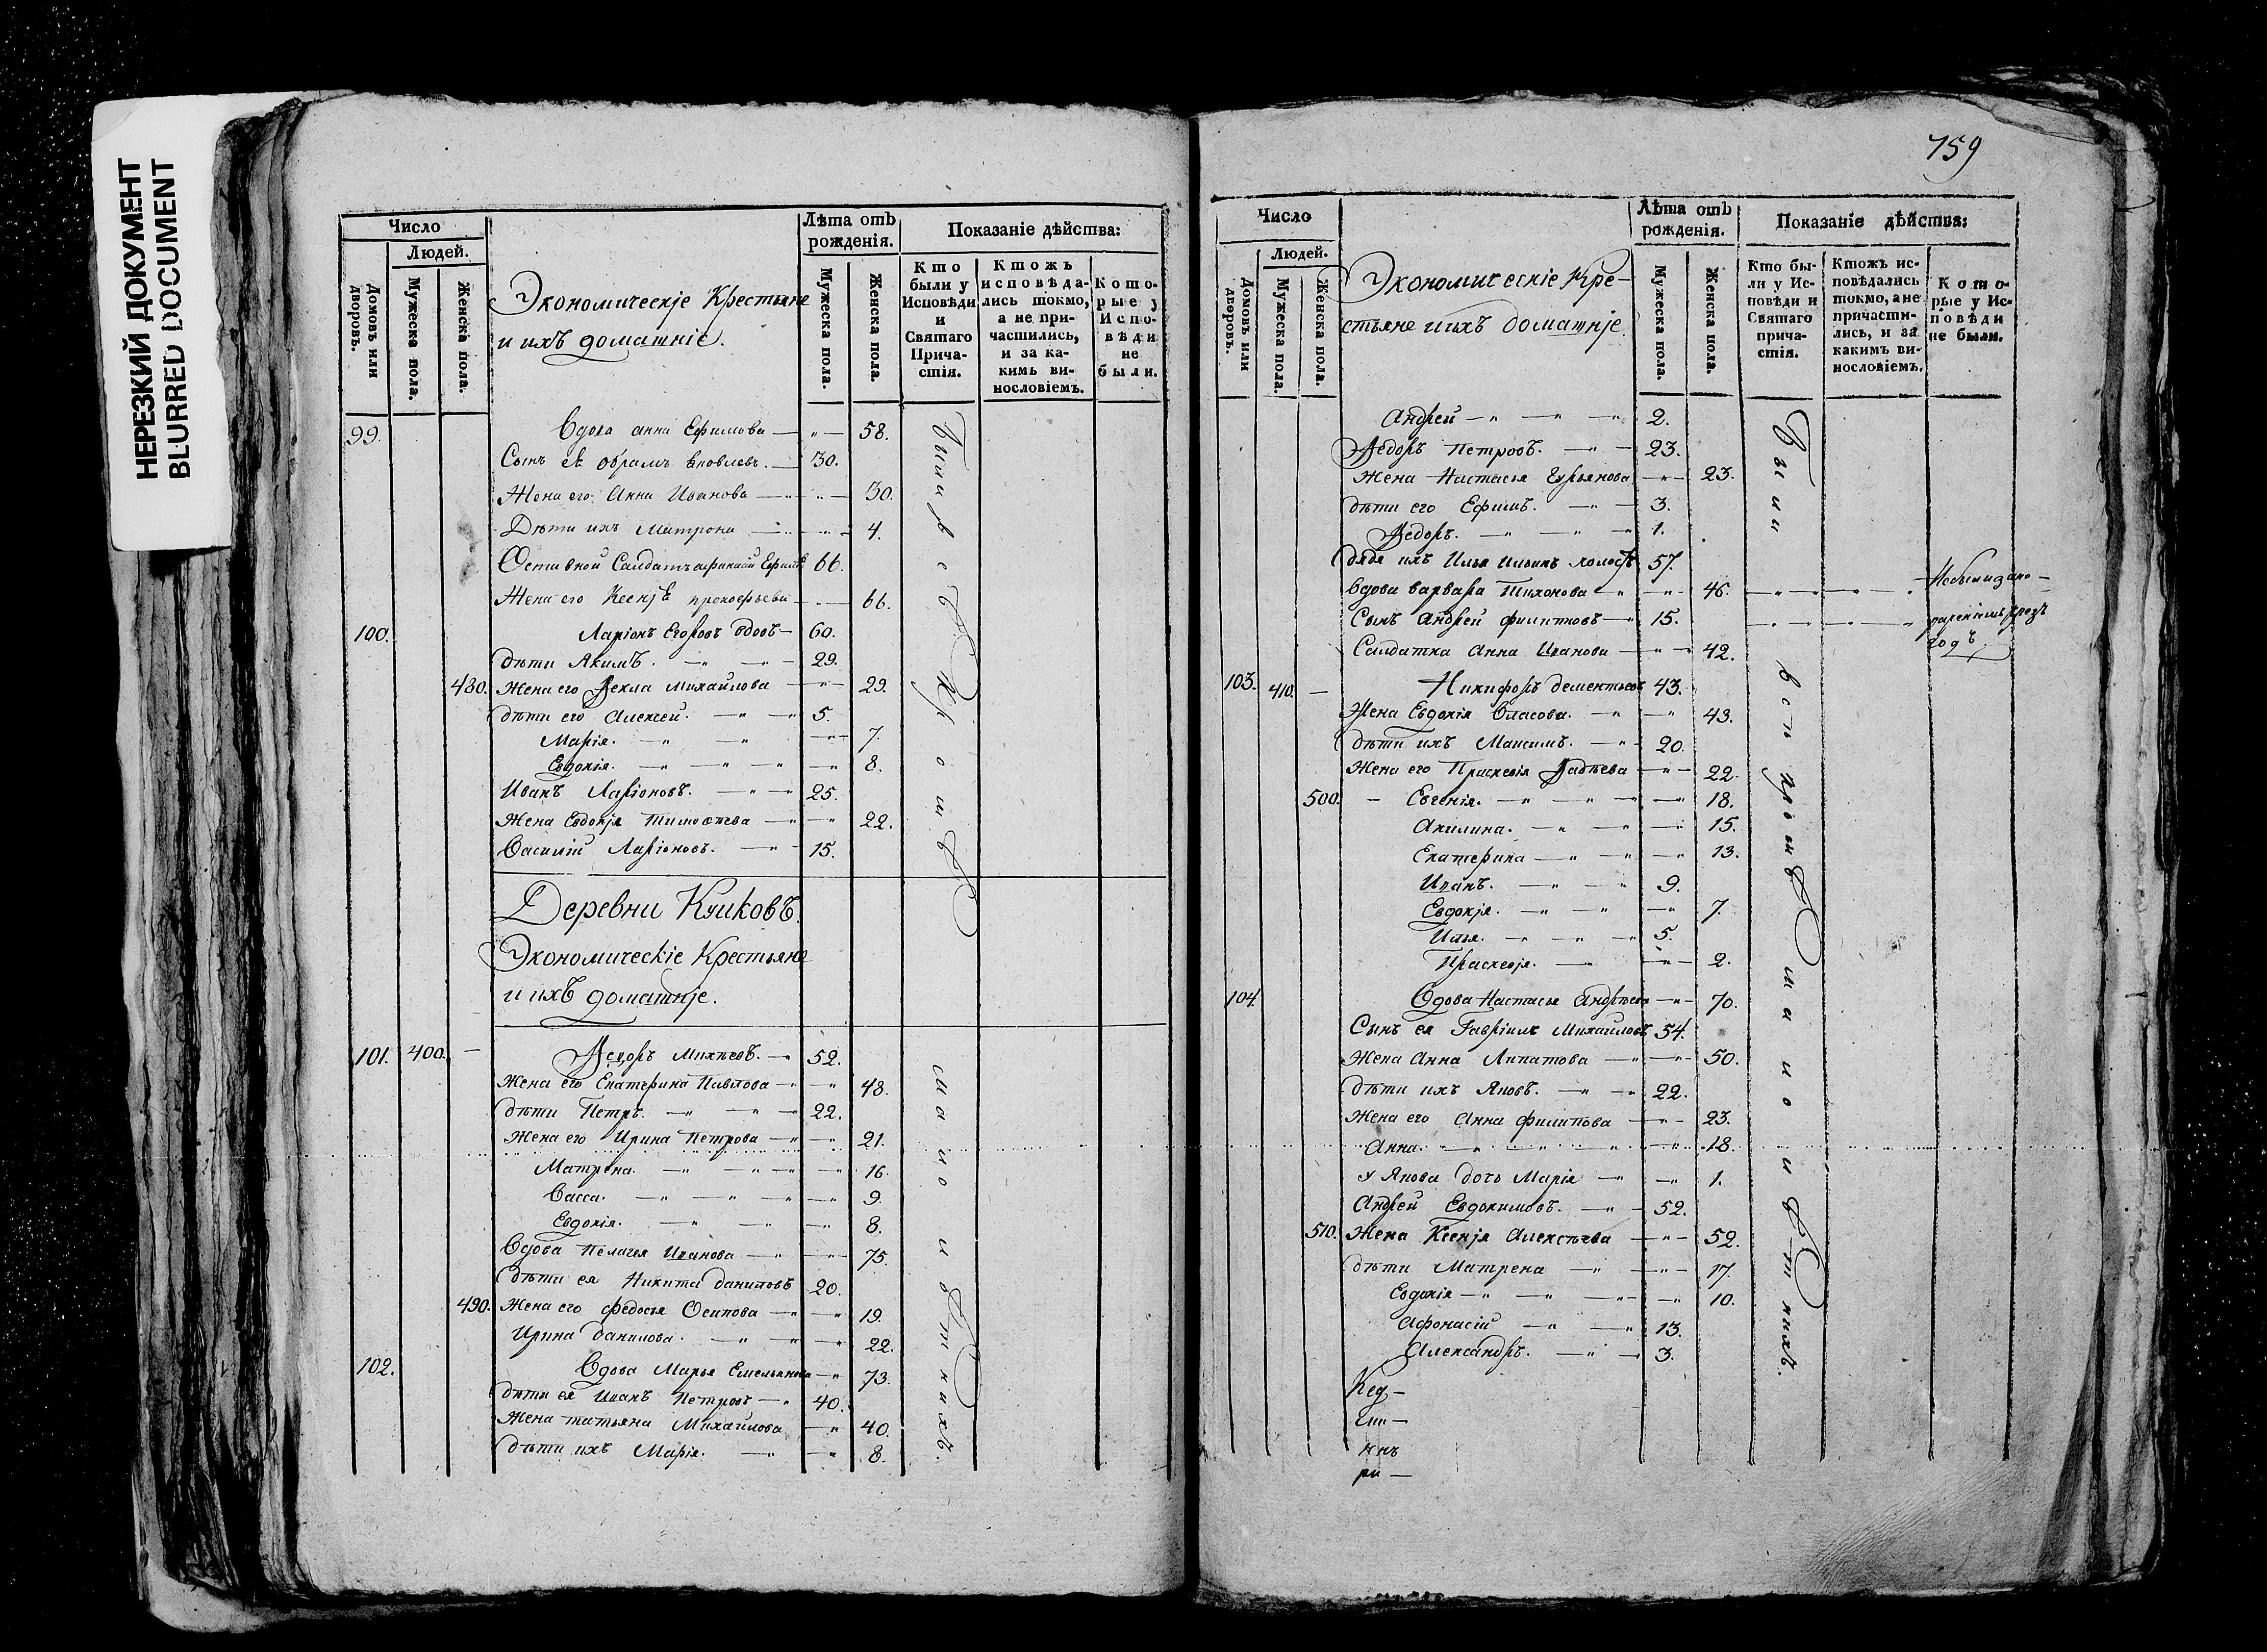 НЕРЕЗКИЙ ДОКУМЕНТ
BLURRED DOCUMENT
Число
Людей.
Домовъ или дворовъ.
Мужеска пола.
Женска пола.
Экономическіе Крестьяне
и ихъ домашніе.
Лѣта отъ рожденія.
Мужеска пола.
Женска пола.
Показаніе дѣйства:
Кто были у Исповѣди и Святаго Причастія.
Ктожъ исповѣдались токмо, а не причастились, и за какимъ винословіемъ.
Которые у Исповѣди не были.
99. Вдова анна Ефимова — 58.
Сынъ еѣ Абрамъ Яковлевъ. — 30.
Жена его Анна Иванова — 30.
Дѣти ихъ Матрона — 4.
Отставной Салдатъ афанасій 66.
Жена его Ксенjѣ прокофьева — 66.
100. Ларіонъ Егоровъ вдовъ — 60.
дѣти Якимъ. — 29.
480. Жена его Ѳекла Михайлова — 29.
дѣти его Алексей. — 5.
Марія. — 7.
Евдокія. — 8.
Иванъ Ларіоновъ. — 25.
Жена Евдокjя Тимоѳеева — 22.
Василій Ларіоновъ. — 15.
Деревни
Экономическіе Крестьяне
и ихъ домашніе.
101. 400. — Ѳедоръ Михѣевъ. — 52.
Жена его Екатерина Павлова — 48.
дѣти Петръ. — 22.
Жена его Ирина Петрова — 21.
Матрена. — 16.
Васса. — 9.
Евдокія. — 8.
Вдова Пелагея Иванова — 75.
дѣти ея Никита даниловъ 20.
490. Жена его Федосья Осипова — 19.
Ирина данилова. — 22.
102. Вдова Марья Емельянова — 73.
дѣти ея Иванъ Петровъ — 40.
Жена татьяна Михайлова — 40.
дѣти ихъ Марія. — 8.
Были всѣ кромѣ малолѣтнихъ.
759
Число
Людей.
Домовъ или дворовъ.
Мужеска пола.
Женска пола.
Экономическіе Кре-
стьяне и ихъ домашніе.
Лѣта отъ рожденія.
Мужеска пола.
Женска пола.
Показаніе дѣйства:
Кто были у Исповѣди и Святаго причастія.
Ктожъ исповѣдались токмо, а не причастились, и за какимъ винословіемъ.
Которые у Исповѣди не были.
Андрей — 2.
Ѳедоръ Петровъ. — 23.
Жена Настасья Гурьянова — 23.
дѣти его Ефимъ. — 3.
Ѳедоръ. — 1.
дядя ихъ Илья Ильинъ холостъ 57.
Вдова варвара Тихонова — 46.
Сынъ Андрей филиповъ — 15.
Салдатка Анна Иванова — 42.
103. 410. — Никифоръ дементьевъ 43.
Жена Евдокія Власова. — 43.
дѣти ихъ Максимъ. — 20.
Жена его Праскевія Ѳадѣева — 22.
500. — Евгенія. — 18.
Акилина. — 15.
Екатерина — 13.
Иванъ. — 9.
Евдокjя. — 7.
Илья. — 5.
Праскевjя. — 2.
104. Вдова Настасья Андрѣева — 70.
Сынъ ея Гавріилъ Михайловъ 54.
Жена Анна Липатова — 50.
дѣти ихъ Яковъ. — 22.
Жена его Анна филипова — 23.
Анна. — 18.
у Якова дочь Марія — 1.
Андрей Евдокимовъ. — 52.
510. Жена Ксенjя Алексѣева — 52.
дѣти Матрена — 17.
Евдокія — 10.
Афонасій — 13.
Александръ. — 3.
Были всѣ кромѣ малолѣтнихъ.
годъ